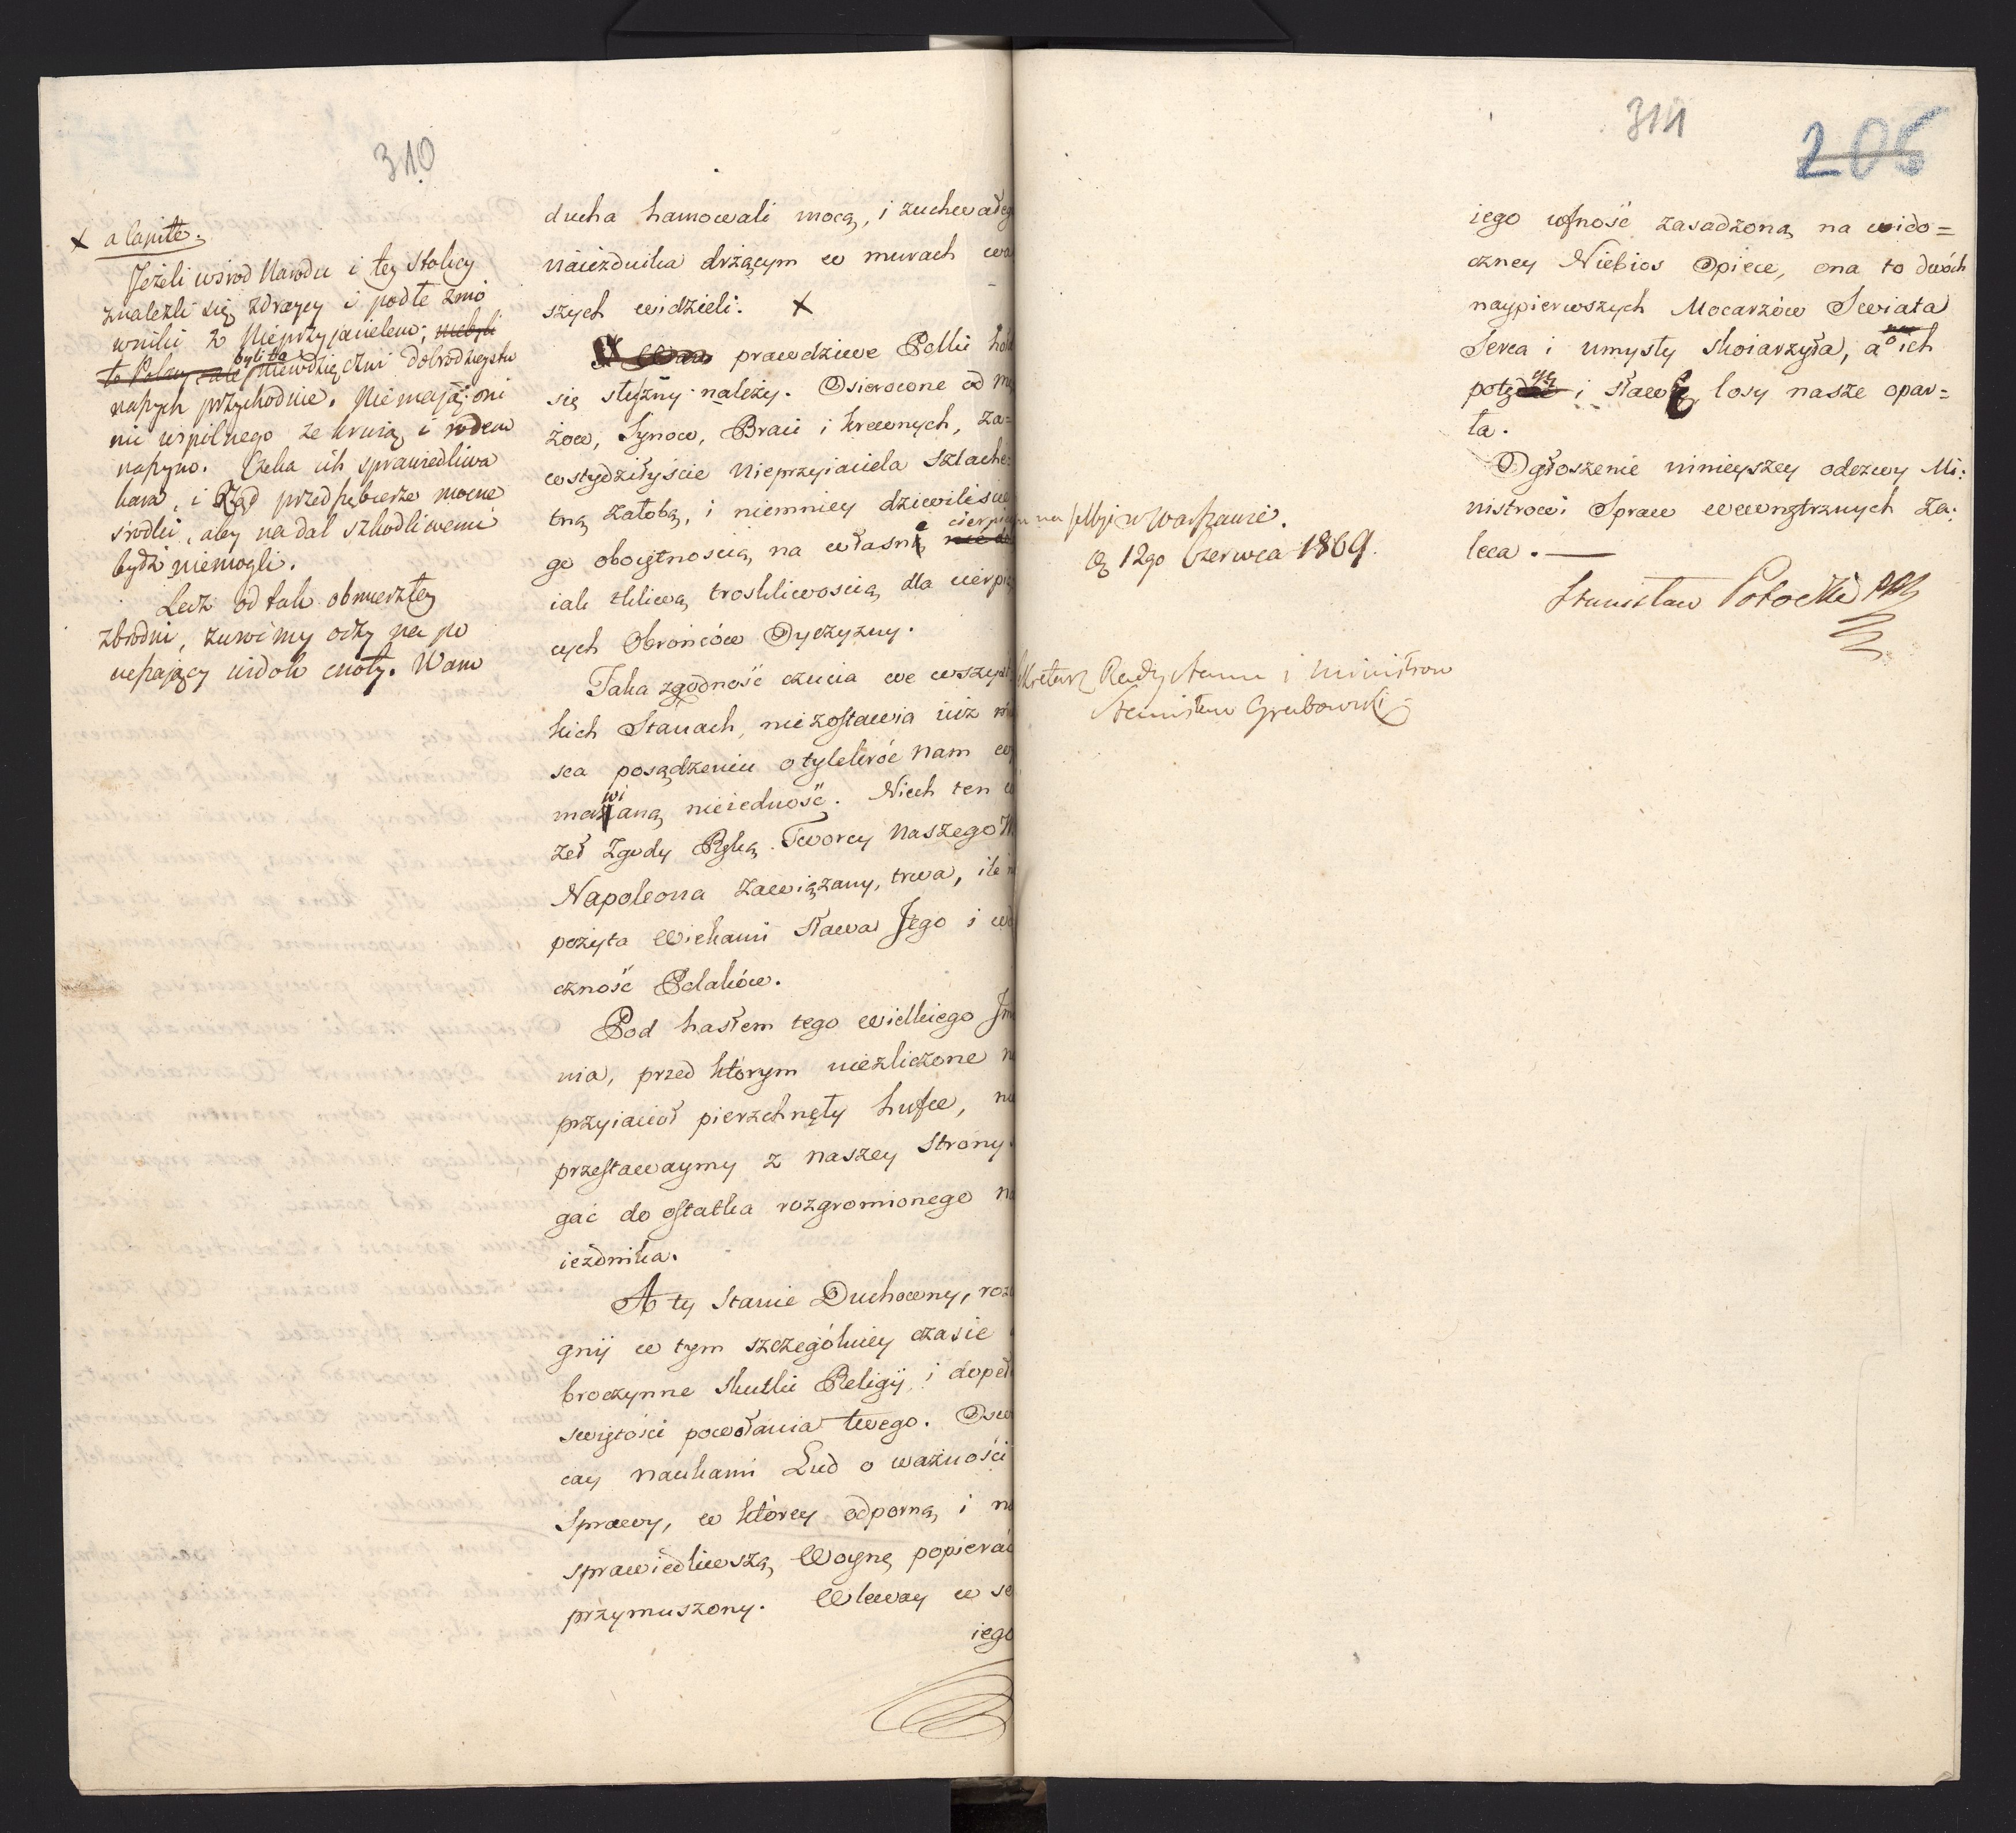 310
x a capite.
Jeżeli wśrod Narodu i tey Stolicy
znaleźli się zdraycy i podłe zmo
wniki z Nieprzyjacielem; niebyli
to Polacy ale byli to niewdzięczni dobrodzieystw
naszych przychodnie. Nie maią oni
nic wspólnego ze krwią i rodem
naszym. Czeka ich sprawiedliwa
kara, i Rząd przedsębierze mocne
środki, aby nadal szkodliwemi
bydź niemogli.
Lecz od tak obmierzłey
zbrodni, zwróćmy oczy na po
cieszaiący widok cnoty. Wam
ducha hamowali mocą, i zuchwałeg
naiezdnika drżącym w murach wa
szych widzieli. x
prawdziwe Polki hoł
się słuszny należy. Osierocone od mę
żow, Synow, Braci i krewnych, za=
wstydziłyście Nieprzyiaciela szlache=
tną żałobą, i niemniey dziwiliście
go oboiętnością na własne cierpie
iak tkliwą troskliwością dla cierpią
cych Obrońców Oyczyzny.
Taka zgodność czucia we wszyst
kich Stanach, niezostawia iuż mie
sca posądzeniu o tylekroć nam wy
mawianą nieiedność. Niech ten wę
zeł zgody Ręką Tworcy naszego W
Napoleona zawiązany, trwa, ile
pożyta Wiekami sława Jego i wd
czność Polaków.
Pod hasłem tego wielkiego Jmie
nia, przed którym niezliczone n
przyiacioł pierzchnęły hufce, nie
przestawaymy z naszey Strony
gać do ostatka rozgromionego na
iezdnika.
A ty Stanie Duchowny, roz
gnij w tym szczególniey czasie
broczynne skutki Religij, i dopeł
swiętości powołania twego. Oswi
cay naukami Lud o ważności
Sprawy, w którey odporną i na
sprawiedliwszą Woynę popierać
przymuszony. Wleway w se
iego
311
205
iego ufność zasadzoną na wido=
czney Niebios Opiece, ona to dwóch
naypierwszych Mocarzów Swiata
Serca i umysły skoiarzyła, a o ich
potęgę i sławę losy nasze opar=
ta.
Ogłoszenie ninieyszey odezwy Mi=
nistrowi Spraw wewnętrznych za=
leca. —
Stanisław Potocki
na Sessyi w Warszawie.
D. 12go Czerwca 1809.
Sekretarz Rady Stanu i Ministrow
Stanisław Grabowski